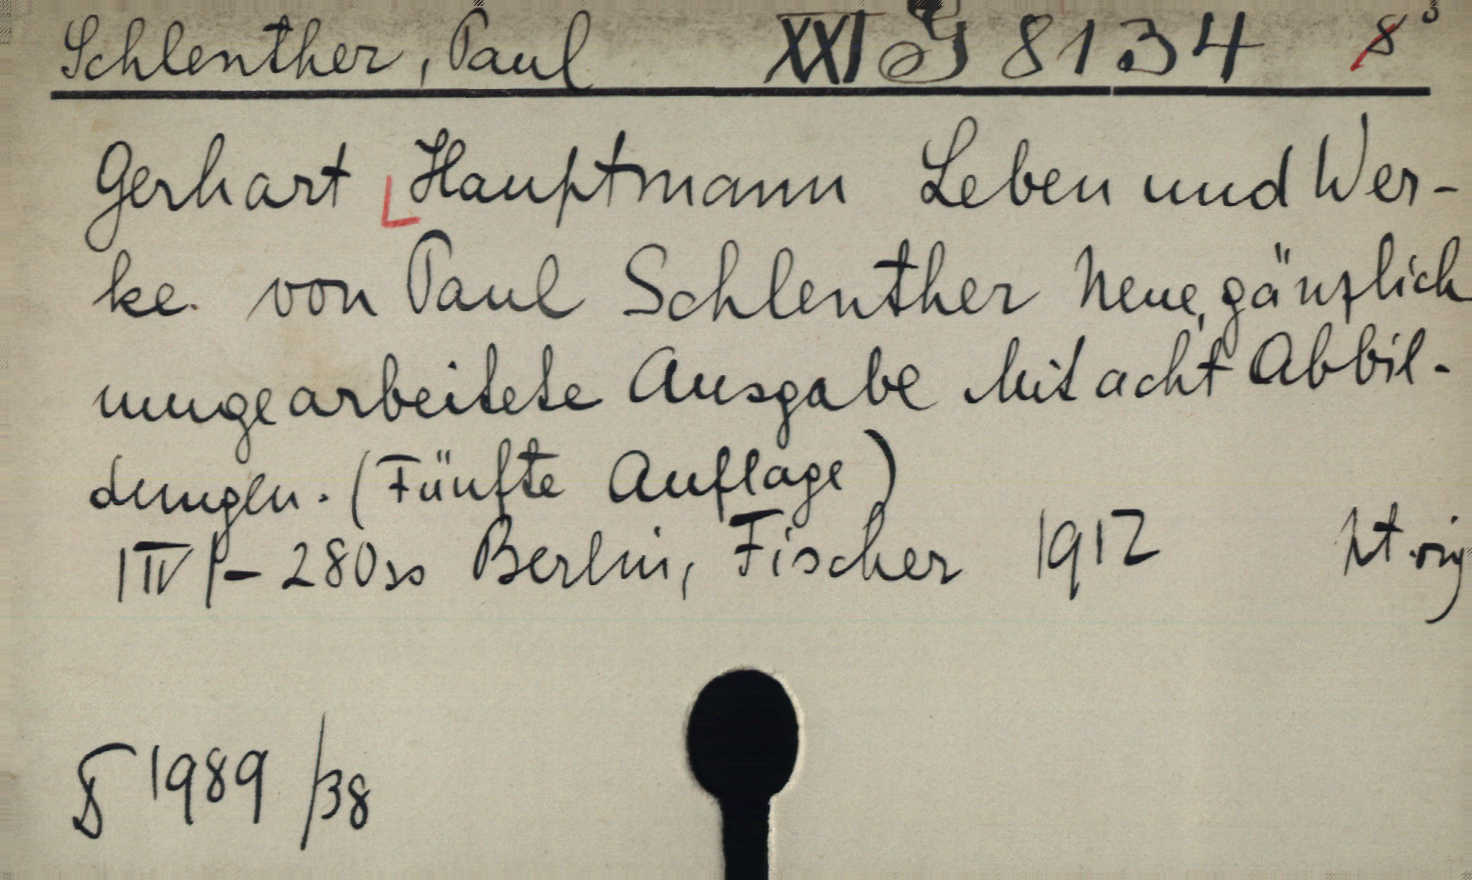 Schlenther, Paul XXI G 8134 8°
Gerhart Hauptmann Leben und Wer-
ke. von Paul Schlenther Neue, gänzlich
umgearbeitete Ausgabe Mit acht Abbil-
dungen. (Fünfte Auflage)
280 ss Berlin, Fischer 1912
1989/38